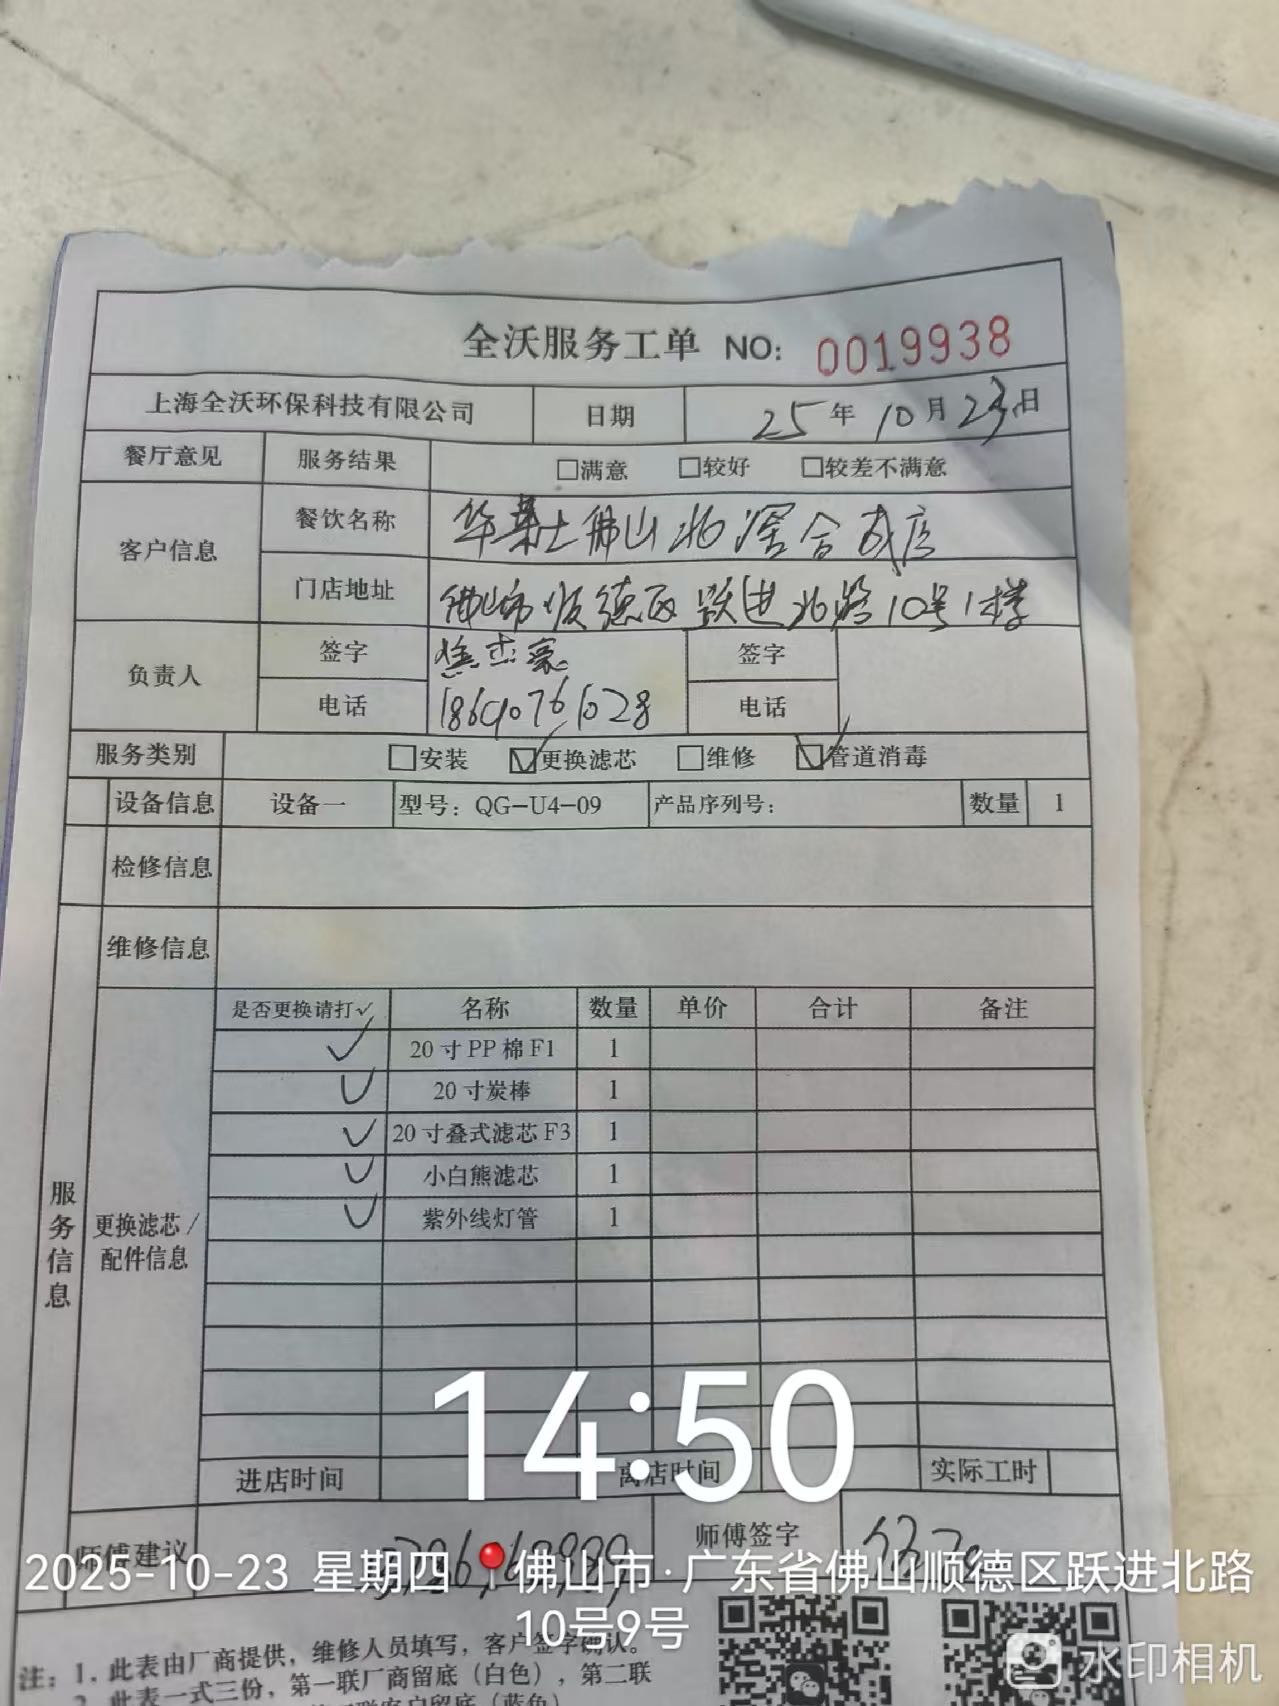 全沃服务工单 NO: 0019938
上海全沃环保科技有限公司 日期 25年10月23日
餐厅意见 服务结果 □满意 □较好 □较差不满意
客户信息 餐饮名称 华莱士佛山北滘合成店
门店地址 佛山市顺德区跃进北路10号1楼
负责人 签字 签字
电话 电话
服务类别 □安装 ☑更换滤芯 □维修 ☑管道消毒
设备信息 设备一 型号：QG-U4-09 产品序列号： 数量 1
检修信息
维修信息
服务信息
更换滤芯/
配件信息
是否更换请打✓ 名称 数量 单价 合计 备注
✓ 20寸PP棉F1 1
✓ 20寸炭棒 1
✓ 20寸叠式滤芯F3 1
✓ 小白熊滤芯 1
✓ 紫外线灯管 1
14:50
进店时间 离店时间 实际工时
师傅建议 师傅签字
2025-10-23 星期四 佛山市·广东省佛山顺德区跃进北路
10号9号
注：1. 此表由厂商提供，维修人员填写，客户签字确认。
2. 此表一式三份，第一联厂商留底（白色），第二联
水印相机